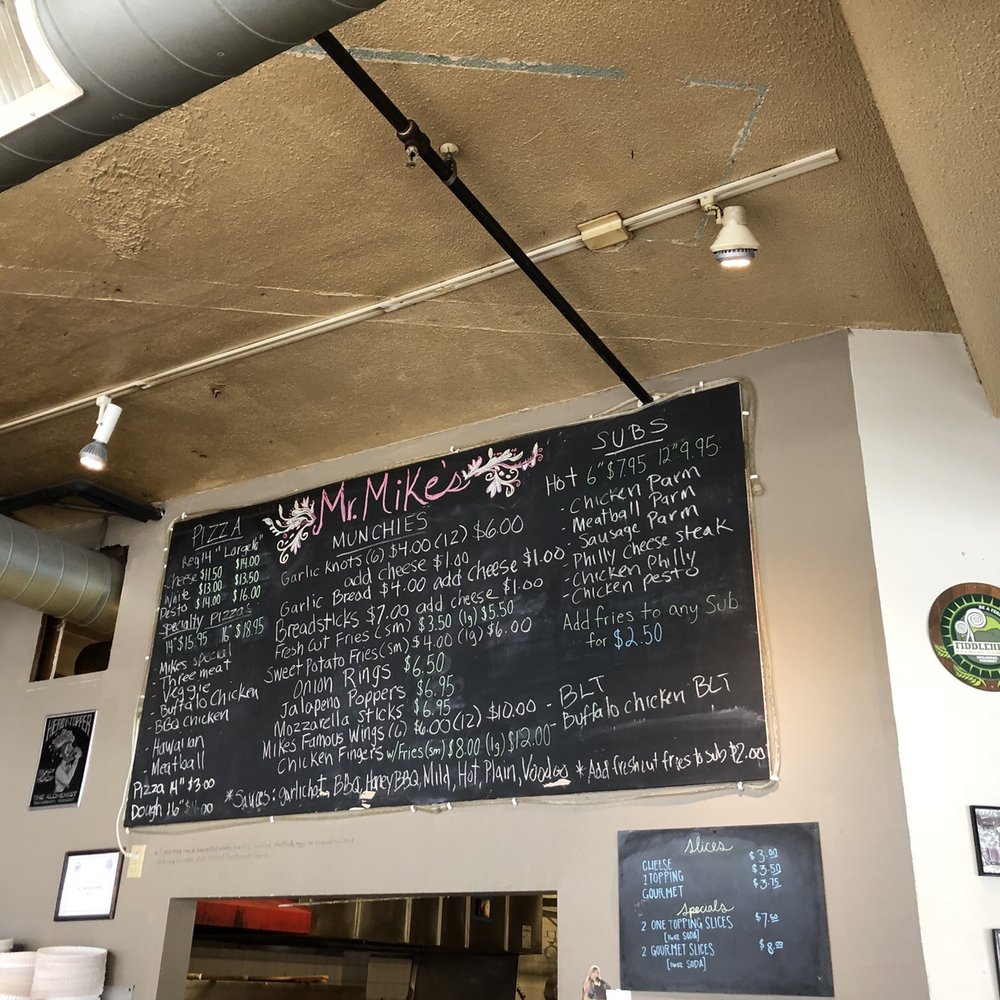 Mr. Mike's
PIZZA
Reg 14" Large 16"
Cheese $11.50 $14.00
White $13.00 $13.50
Pesto $14.00 $16.00
Specialty Pizza's
14" $15.95 16" $18.95
Mikes special
Three meat
Veggie
- Buffalo Chicken
- BBQ chicken
- Hawaiian
- Meatball
Pizza 14" $3.00
Dough 16"
MUNCHIES
Garlic Knots (6) $4.00 (12) $6.00
add cheese $1.00
Garlic Bread $4.00 add cheese $1.00
Breadsticks $7.00 add cheese $1.00
Fresh cut Fries (sm) $3.50 (lg) $5.50
Sweet Potato Fries (sm) $4.00 (lg) $6.00
Onion Rings $6.50
Jalapeno Poppers $6.95
Mozzarella Sticks $6.95
Mikes Famous Wings (6) $6.00 (12) $10.00
Chicken Fingers w/Fries (sm) $8.00 (lg) $12.00
*Sauces: garlic hot, BBQ, Honey BBQ, Mild, Hot, Plain, Voodoo
SUBS
Hot 6" $7.95 12" 9.95
- Chicken Parm
- Meatball Parm
- Sausage Parm
- Philly Cheese steak
- Chicken Philly
- Chicken pesto
Add fries to any Sub
for $2.50
- BLT
- Buffalo chicken BLT
* Add fresh cut fries to sub $2.00
Slices
CHEESE $3.00
1 TOPPING $3.50
GOURMET $3.75
Specials
2 ONE TOPPING SLICES $7.50
[16oz SODA]
2 GOURMET SLICES $8.00
[16oz SODA]
HEADY TOPPER
THE ALCHEMIST